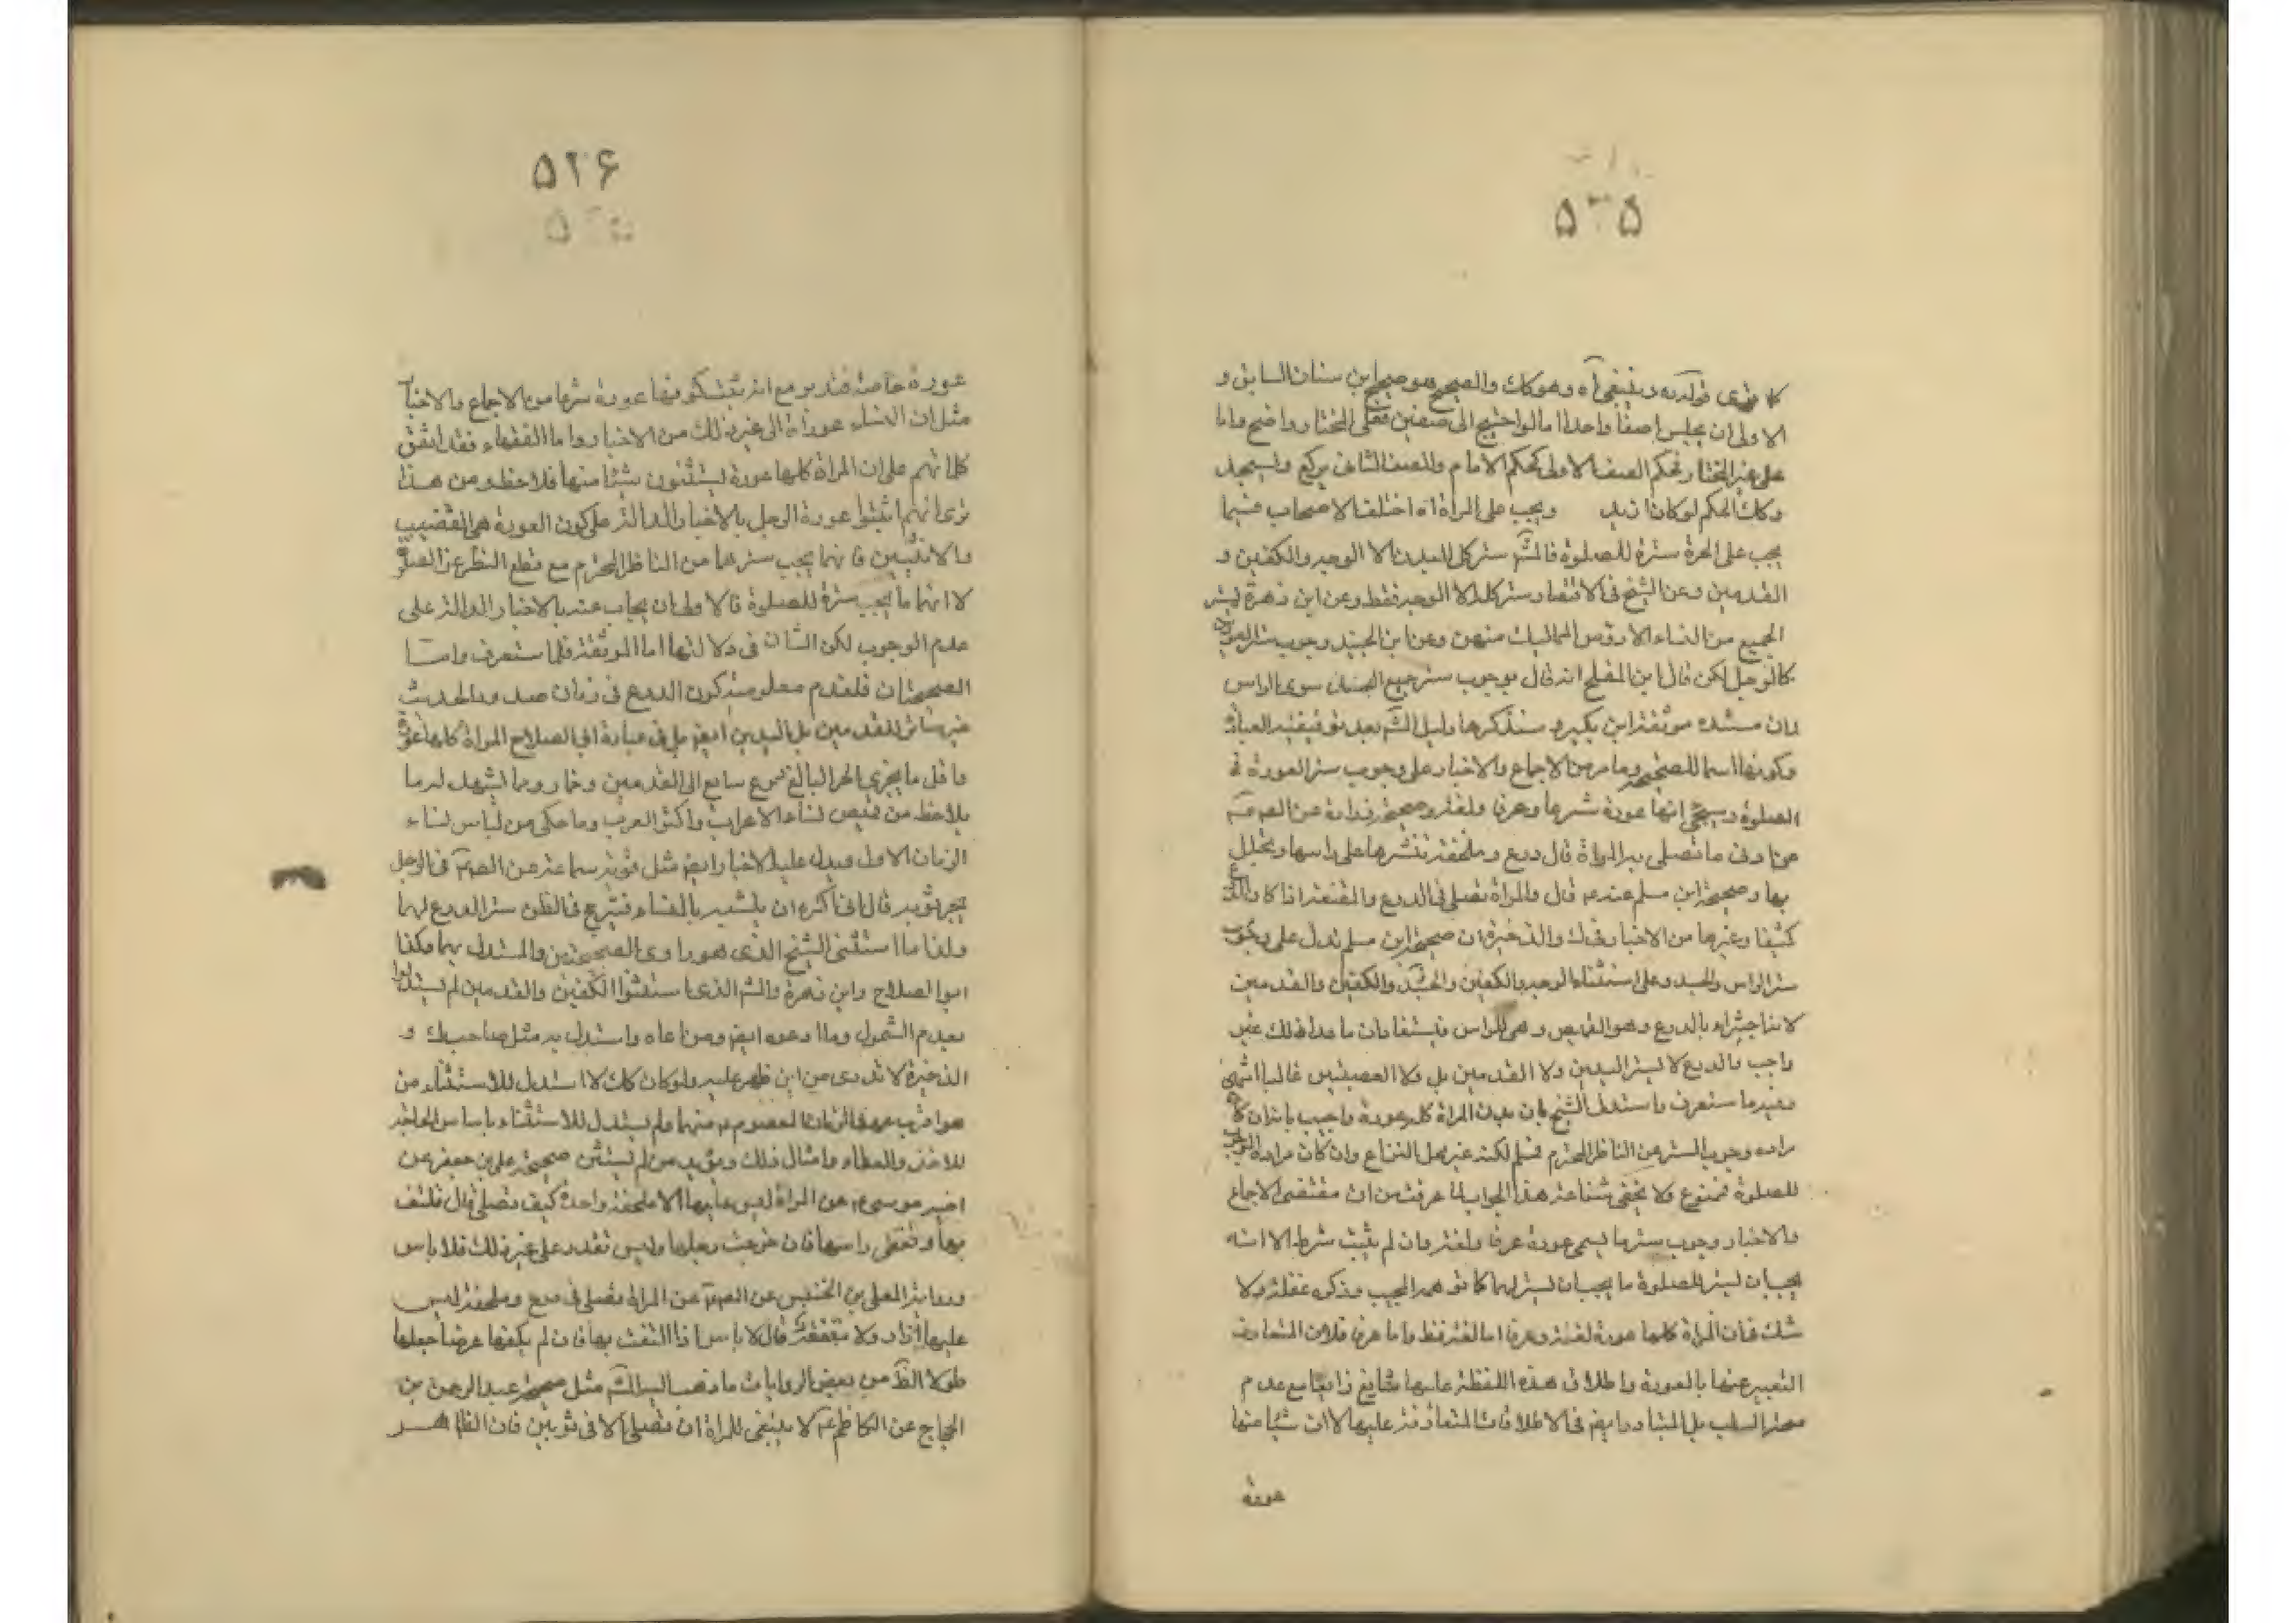 ۵۲۵
كا مرى قوله ره وينبغي آه وهو كك والصحيح هو صحيح ابن سنان السابق و
الاولى ان يجلس صفا واحدا اما لو احتيج الى صفين فعلى المختار واضح واما
على غير المختار فحكم الصف الاول كحكم الامام والصف الثاني يركع ويسجد
وكك الحكم لو كان ازيد ويجب على المراة آه اختلف الاصحاب فيما
يجب على الحرة ستره للصلوة فالشم ستر كل البدن الا الوجه والكفين و
القدمين وعن الشيخ في الاقتصار ستر كله الا الوجه فقط وعن ابن زهرة يستر
الجميع من النساء الا رؤس المماليك منهن وعن ابن الجنيد وجوب ستر العورتين
كالرجل لكن قال ابن المفلح انه قال بوجوب ستر جميع البدن سوى الراس
وان مستنده موثقة ابن بكير و سنذكرها دليل الشم بعد توقيفية العبادة
وكونها اسما للصحيحة وما مر من الاجماع والاخبار على وجوب ستر العورة في
الصلوة وسيجئ انها عورة شرعا وعرفا ولغة وصحيحة زرارة عن الصم عم
عن ادنى ما تصلى به المراة قال درع وملحفة تنشرها على راسها وتجلل
بها وصحيحة ابن مسلم عنه عم قال والمراة تصلى في الدرع والمقنعة اذا كان الدرع
كثيفا وغيرها من الاخبار وفي ك والذخيرة ان صحيحة ابن مسلم تدل على وجوب
ستر الراس والجسد وعلى استثناء الوجه بالكفين والكفين والقدمين
لاجتزاءه بالدرع وهو القميص وهي للراس فيستفاد ان ما عدا ذلك غير
واجب والدرع لا يستر اليدين ولا القدمين بل ولا العصبتين غالبا انتهى
وفيه ما ستعرف واستدل الشيخ بان بدن المراة كله عورة واجيب بانه ان كان
مراده وجوب الستر من الناظر المحترم فمسلم لكنه غير محل النزاع وان كان مراده الوجوب
للصلوة فممنوع ولا يخفى شناعة هذا الجواب لما عرفت من ان مقتضى الاجماع
والاخبار وجوب ستر ما يسمى عورة عرفا ولغة وان لم يثبت شرعا الا انه
يجب ان يستر للصلوة ما يجب ان يستر لهما كما توهمه المجيب وذكره غفلة ولا
شك في ان المراة كلها عورة لغة وعرفا اما لغة فقط واما عرفا فلان المتعارف
التعبير عنها بالعورة واطلاق هذه اللفظة عليها شايع ذايع مع عدم
صحة السلب بل المتبادر ايضم في الاطلاقات المتعارفة عليها لا ان شيئا منها
عورة
۵۲۶
عورة خاصة فتدبر مع انه يتشكو فيها عورة شرعا من الاجماع والاخبار
مثل ان النساء عوراة الى غير ذلك من الاخبار واما الفقهاء فقد اتفق
كلماتهم على ان المراة كلها عورة يستثنون شيئا منها فلاحظ ومن هذا
ترى انهم اثبتوا عورة الرجل بالاخبار الدالة على كون العورة هي القضيب
والانثيين فانهما يجب سترهما من الناظر المحترم مع قطع النظر عن الصلوة
لا انهما ما يجب ستره للصلوة فالاولى ان يجاب عنه بالاخبار الدالة على
عدم الوجوب لكن الشان في دلالتها اما الموثقة فلما ستعرف واما
الصحيحتان فلعدم معلومية كون الدرع في زمان صدور الحديث
غير ساتر للقدمين بل اليدين ايضم بل في عبارة ابي الصلاح المراة كلها عورة
واقل ما يجزي الحر البالغ درع سابغ الى القدمين وخمار وربما يشهد له ما
يلاحظ من قميص نساء الاعراب واكثر العرب وما حكى من لباس نساء
الزمان الاول ويدل عليه الاخبار ايضم مثل موثقة سماعة عن الصم عم في الرجل
يجر ثوبه قال اني اكره ان يتشبه بالنساء فيترجح في الظن ستر الدرع لهما
ولذا ما استثنى الشيخ الذي هو راوي الصحيحتين والمستدل بهما وكذا
ابو الصلاح وابن زهرة والشم الذي استثنوا الكفين والقدمين لم يستدلوا
بعدم الشمول وما ادعوه ايضم ومن ادعاه واستدل به مثل صاحب ك و
الذخيرة لا ندري من اين ظهر عليه ولو كان كك لاستدل للاستثناء من
هو اقرب عهدا الى زمان المعصوم عم منهما ولم يستدل للاستثناء باساس الحاجة
للاخذ والعطاء وامثال ذلك ويؤيد من لم يستثن صحيحة علي بن جعفر عن
اخيه موسى عم عن المراة ليس عليها الا ملحفة واحدة كيف تصلى قال تلتف
بها وتغطى راسها فان خرجت رجلها وليس تقدر على غير ذلك فلا باس
ورواية المعلى بن الخنيس عن الصم عم عن المراة تصلى في درع وملحفة ليس
عليها ازار ولا مقنعة قال لا باس اذا التفت بها فان لم يكفها عرضا جعلها
طولا الظ من بعض الروايات ما ذهب اليه الشم مثل صحيحة عبد الرحمن بن
الحجاج عن الكاظم عم لا ينبغي للمراة ان تصلى الا في ثوبين فان الظاهر